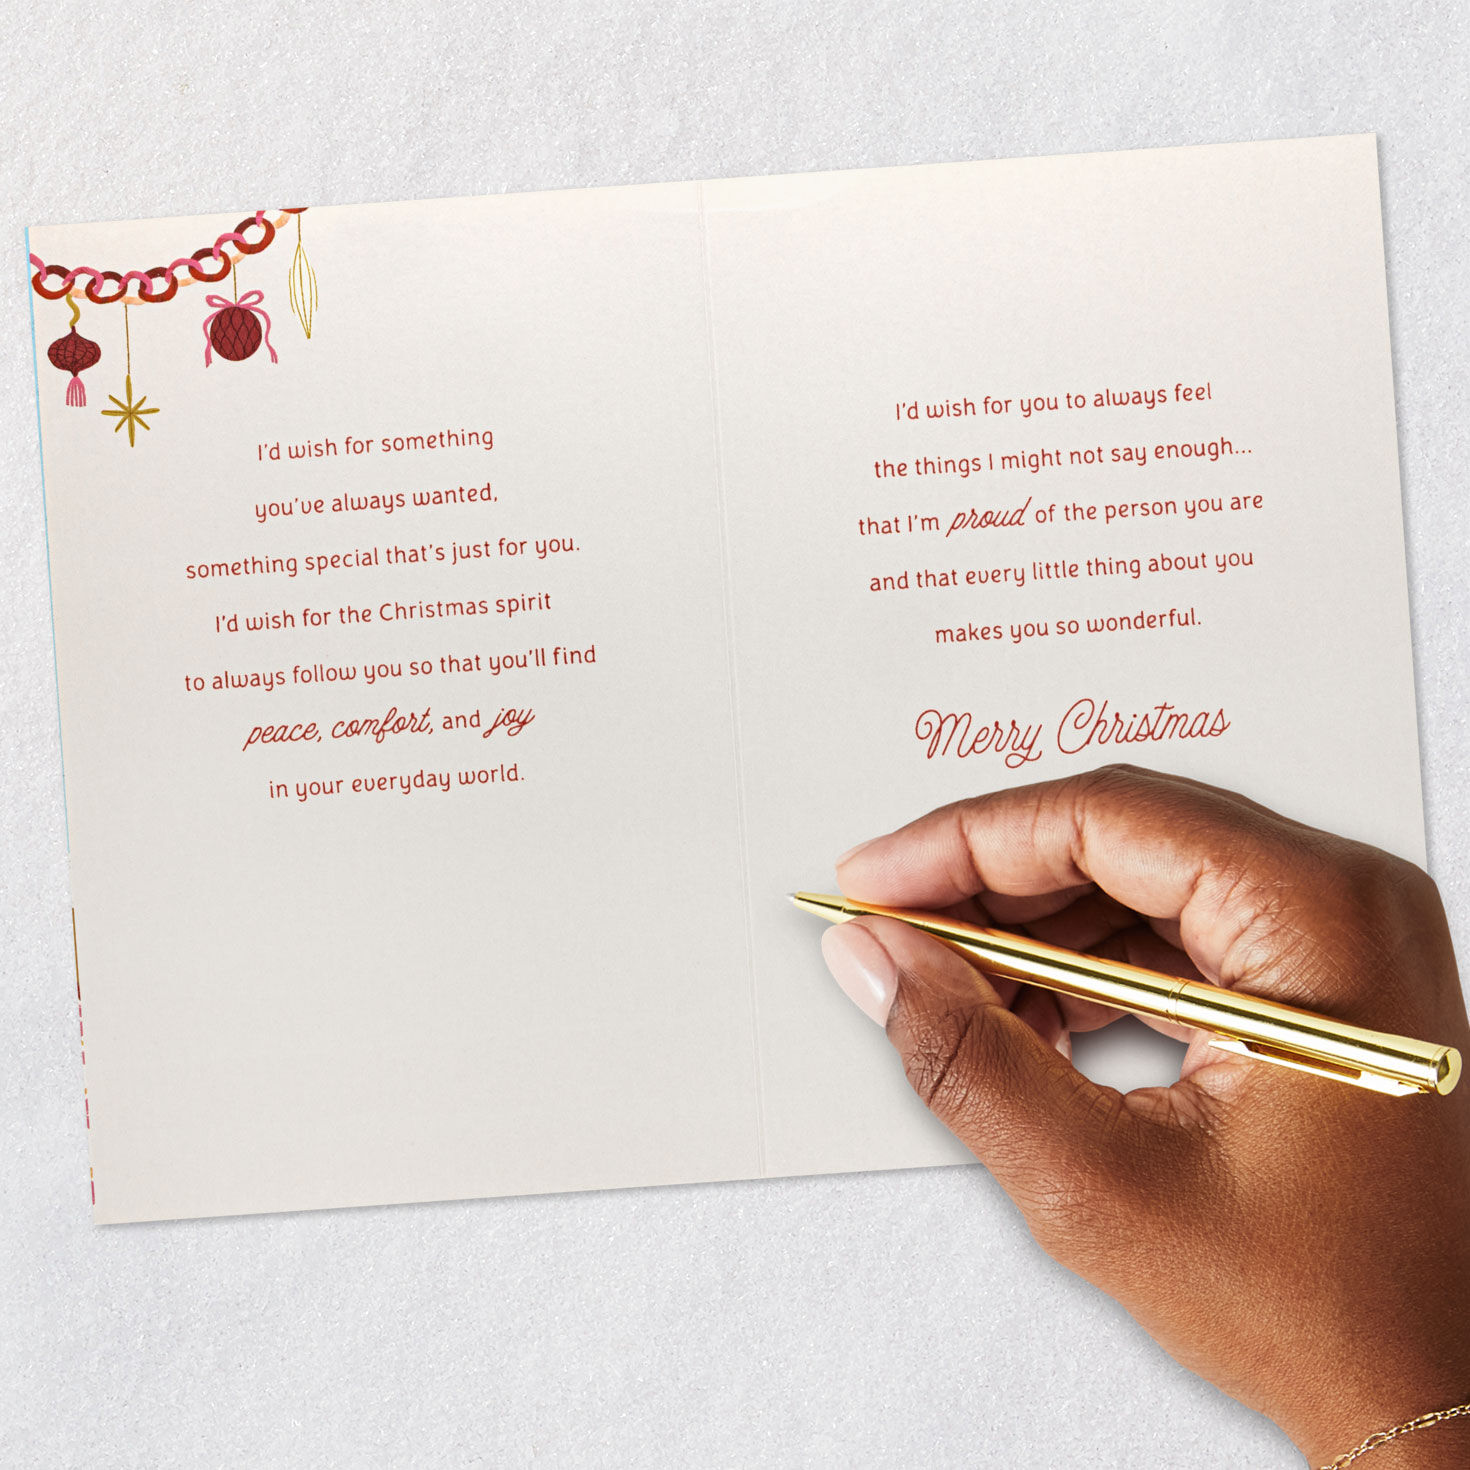 I'd wish for something
you've always wanted,
something special that's just for you.
I'd wish for the Christmas spirit
to always follow you so that you'll find
peace, comfort, and joy
in your everyday world.
I'd wish for you to always feel
the things I might not say enough...
that I'm proud of the person you are
and that every little thing about you
makes you so wonderful.
Merry Christmas